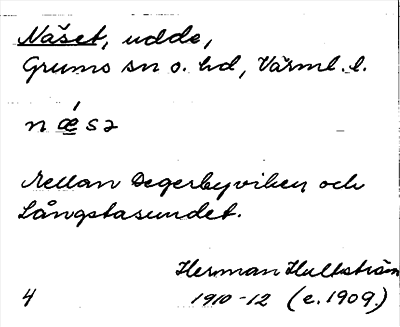 Näset, udde,
Grums sn o. hd, Värml. l.
n ǽ s ə
Mellan Degerbyviken och
Långstasundet.
Herman Hultström
4 1910-12 (c. 1909.)